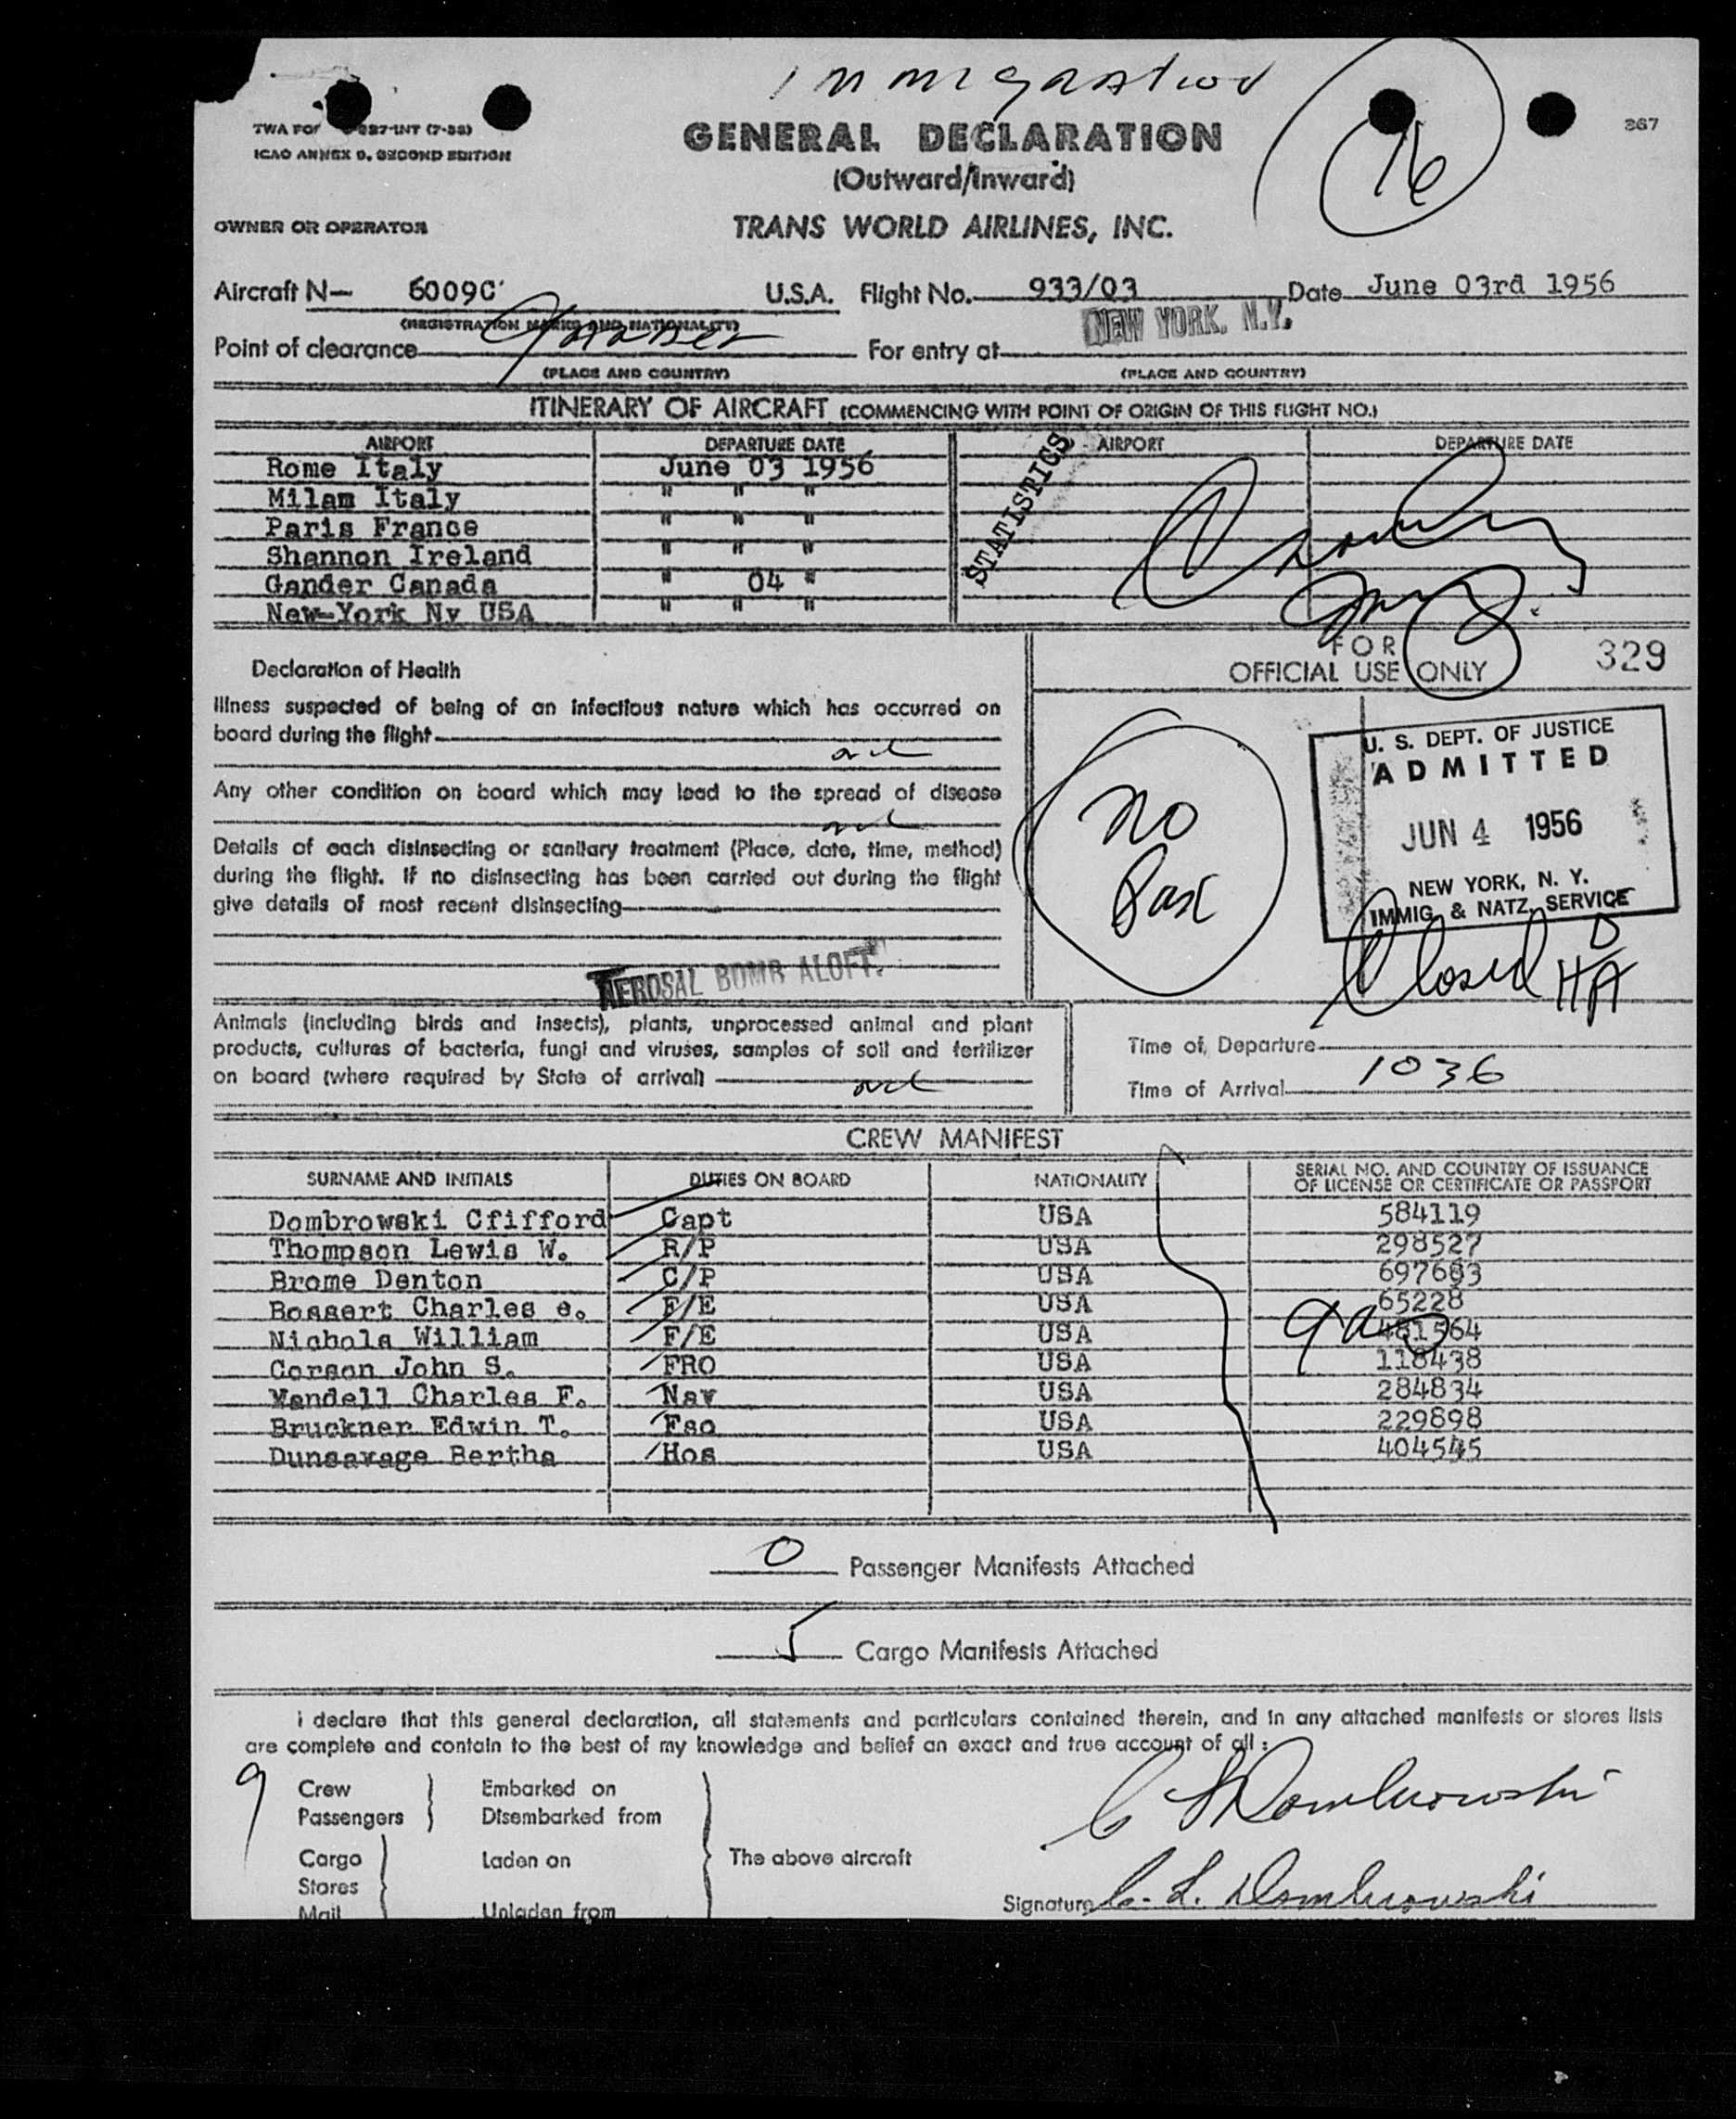 Immigration
TWA FOR 827-INT (7-52)
ICAO ANNEX 9, SECOND EDITION
GENERAL DECLARATION
(Outward/Inward)
16
367
OWNER OR OPERATOR
TRANS WORLD AIRLINES, INC.
Aircraft N— 6009C U.S.A. Flight No. 933/03 Date June 03rd 1956
(REGISTRATION MARKS AND NATIONALITY)
NEW YORK, N.Y.
Point of clearance Gander For entry at
(PLACE AND COUNTRY) (PLACE AND COUNTRY)
ITINERARY OF AIRCRAFT (COMMENCING WITH POINT OF ORIGIN OF THIS FLIGHT NO.)
AIRPORT DEPARTURE DATE AIRPORT DEPARTURE DATE
Rome Italy June 03 1956
Milam Italy " " "
Paris France " " "
Shannon Ireland " " "
Gander Canada " 04 "
New-York Ny USA " " "
STATISTICS
FOR
OFFICIAL USE ONLY
329
Declaration of Health
Illness suspected of being of an infectious nature which has occurred on
board during the flight
nil
Any other condition on board which may lead to the spread of disease
nil
Details of each disinsecting or sanitary treatment (Place, date, time, method)
during the flight. If no disinsecting has been carried out during the flight
give details of most recent disinsecting
AEROSAL BOMB ALOFT.
no
Pax
U. S. DEPT. OF JUSTICE
ADMITTED
JUN 4 1956
NEW YORK, N. Y.
IMMIG. & NATZ. SERVICE
Closed
Animals (including birds and insects), plants, unprocessed animal and plant
products, cultures of bacteria, fungi and viruses, samples of soil and fertilizer
on board (where required by State of arrival) nil
Time of Departure
Time of Arrival 1036
CREW MANIFEST
SURNAME AND INITIALS DUTIES ON BOARD NATIONALITY SERIAL NO. AND COUNTRY OF ISSUANCE
OF LICENSE OR CERTIFICATE OR PASSPORT
Dombrowski Cfifford Capt USA 584119
Thompson Lewis W. R/P USA 298527
Brome Denton C/P USA 697683
Bossert Charles e. F/E USA 65228
Nichols William F/E USA 481564
Corson John S. FRO USA 118438
Mendell Charles F. Nav USA 284834
Bruckner Edwin T. Fso USA 229898
Dunsavage Bertha Hos USA 404545
0 Passenger Manifests Attached
5 Cargo Manifests Attached
I declare that this general declaration, all statements and particulars contained therein, and in any attached manifests or stores lists
are complete and contain to the best of my knowledge and belief an exact and true account of all :
9 Crew Embarked on
Passengers Disembarked from
Cargo Laden on The above aircraft
Stores
Mail Unladen from
C L Dombrowski
Signature C. L. Dombrowski